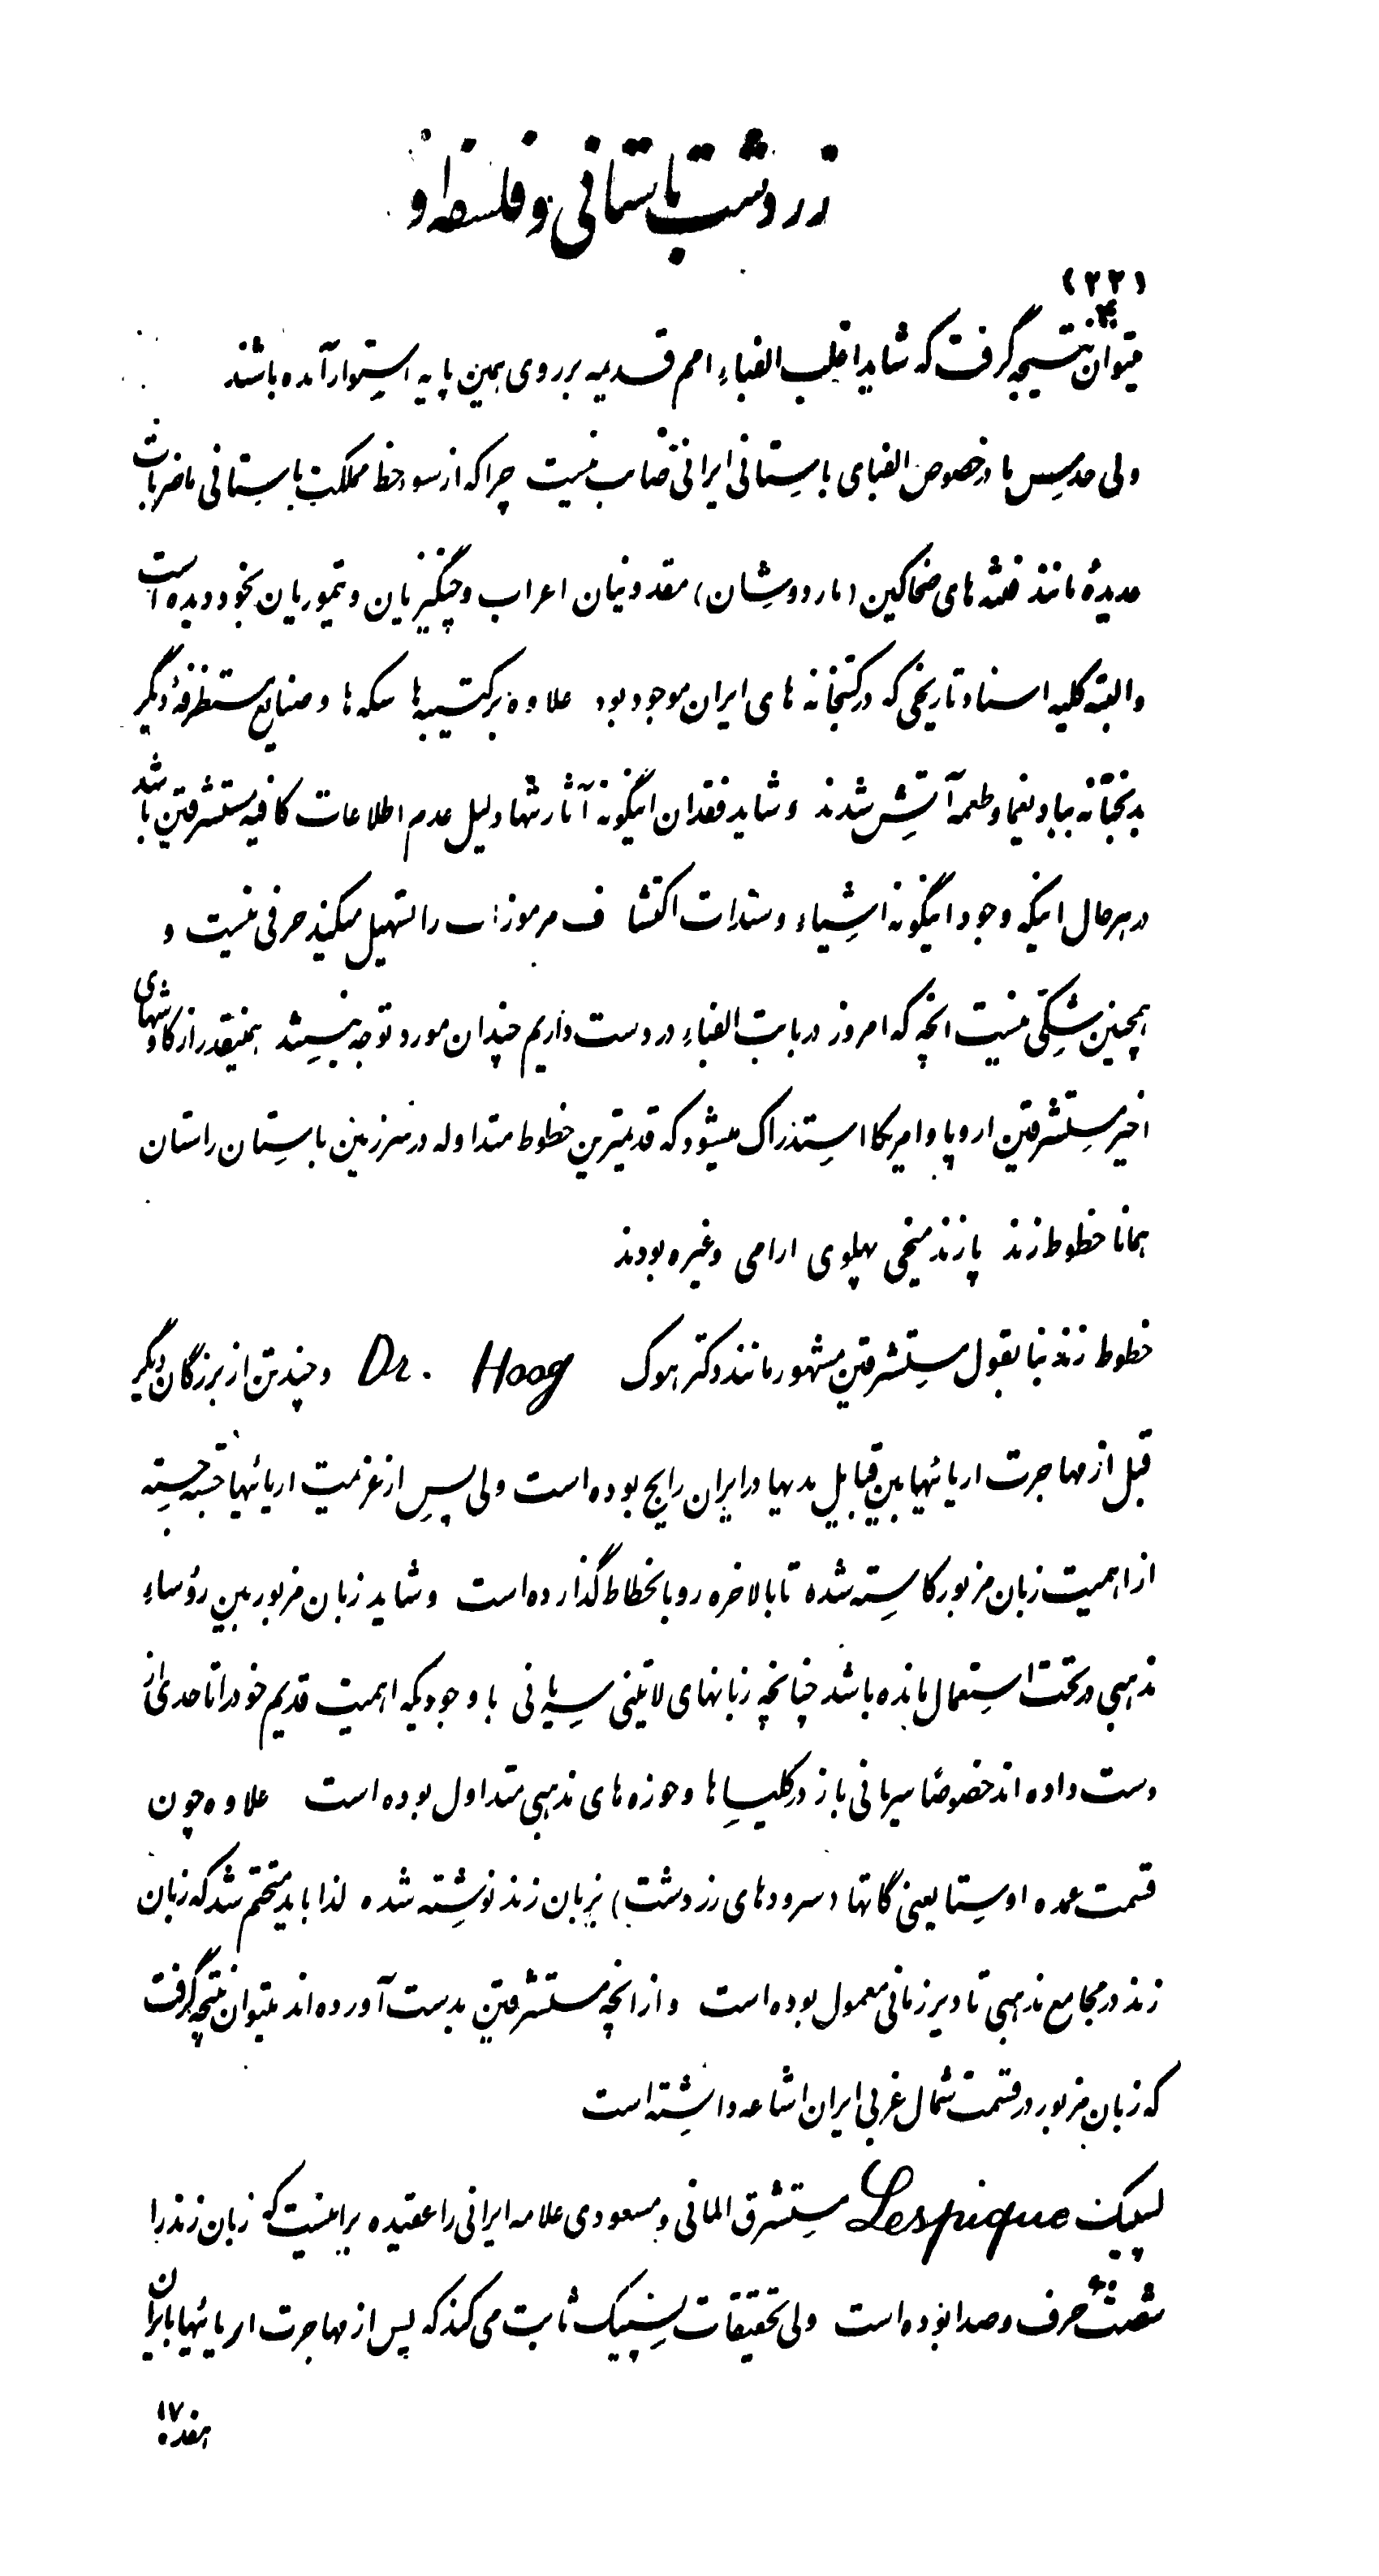 زردشت باستانی و فلسفه او
(۲۲)
میتوان نتیجه گرفت که شاید اغلب الفباء امم قدیمه بر روی همین پایه استوار آمده باشند
ولی حدس ما در خصوص الفبای باستانی ایرانی صائب نیست چرا که از سوء حظ مملکت باستانی ما ضربات
عدیدهٔ مانند فتنه های ضحاکین (ماردوشان) مقدونیان اعراب و چنگیزیان و تیموریان بخود دیده است
و البته کلیه اسناد تاریخی که در کتبخانه های ایران موجود بود علاوه بر کتیبه ها سکه ها و صنایع مستظرفهٔ دیگر
بدبختانه بباد یغما و طعمه آتش شدند و شاید فقدان اینگونه آثار تنها دلیل عدم اطلاعات کافیه مستشرقین باشد
در هر حال اینکه وجود اینگونه اشیاء و سندات اکتشاف مرموزات را تسهیل میکند حرفی نیست و
همچنین شکی نیست انچه که امروز در بابت الفباء در دست داریم چندان مورد توجه نیستند همینقدر از کاوشهای
اخیر مستشرقین اروپا و امریکا استدراک میشود که قدیمترین خطوط متداوله در سرزمین باستان راستان
همانا خطوط زند پازند میخی پهلوی ارامی و غیره بودند
خطوط زند بنا بقول مستشرقین مشهور مانند دکتر هوک Dr. Hoog و چند تن از بزرگان دیگر
قبل از مهاجرت اریائیها بین قبایل مدیها در ایران رایج بوده است ولی پس از عزیمت اریائیها جسته جسته
از اهمیت زبان مزبور کاسته شده تا بالاخره رو بانحطاط گذارده است و شاید زبان مزبور بین رؤساء
مذهبی در تحت استعمال مانده باشد چنانچه زبانهای لاتینی سریانی با وجودیکه اهمیت قدیم خود را تا حدی از
دست داده اند خصوصاً سریانی باز در کلیساها و حوزه های مذهبی متداول بوده است علاوه چون
قسمت عمده اوستا یعنی گاتها (سرودهای زردشت) بزبان زند نوشته شده لذا باید متحتم شد که زبان
زند در مجامع مذهبی تا دیر زمانی معمول بوده است و از انچه مستشرقین بدست آورده اند میتوان نتیجه گرفت
که زبان مزبور در قسمت شمال غربی ایران اشاعه داشته است
لسپیک Lespique مستشرق المانی و مسعودی علامه ایرانی را عقیده براینست که زبان زند را
شصت حرف و صدا بوده است ولی تحقیقات لسپیک ثابت می کند که پس از مهاجرت اریائیها بایران
۱۷
هفده